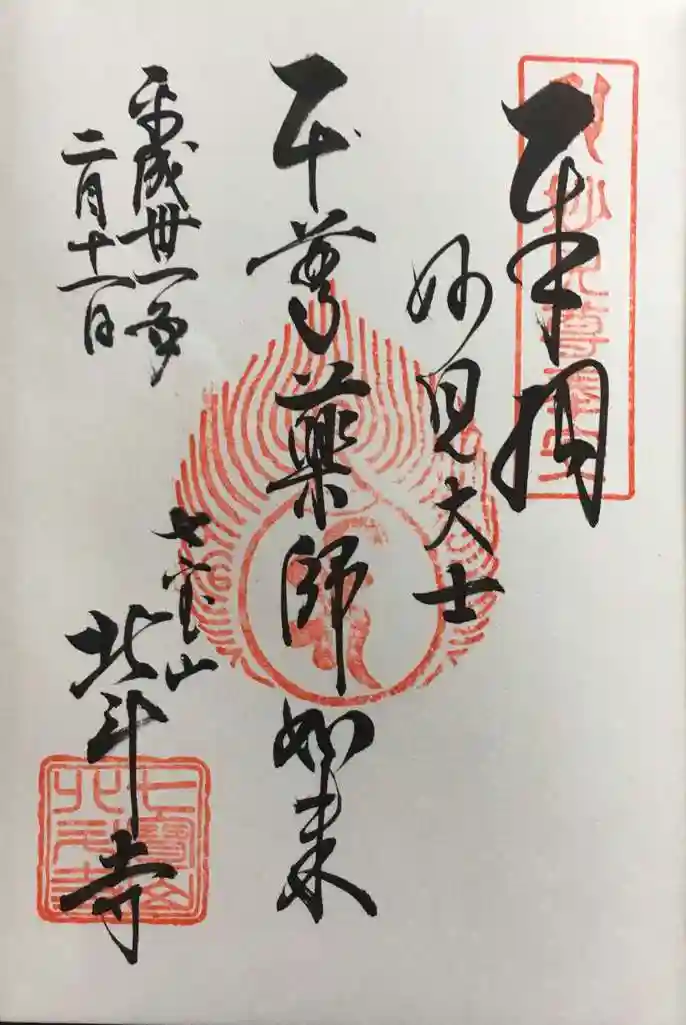 奉拝
妙見大士
本尊薬師如来
平成卅一年
二月十一日
七宝山
北斗寺
七寶山
北斗寺